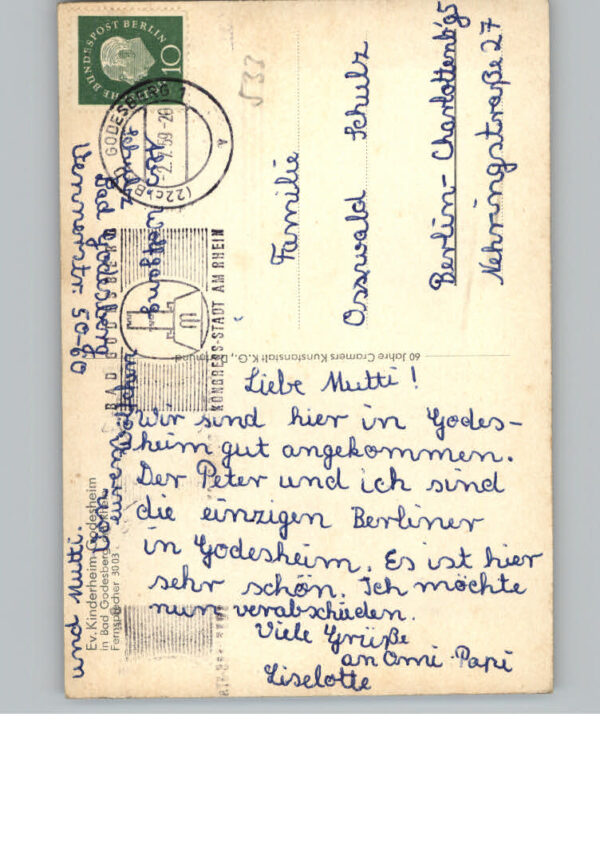 Liebe Mutti!
Wir sind hier in Godes-
heim gut angekommen.
Der Peter und ich sind
die einzigen Berliner
in Godesheim. Es ist hier
sehr schön. Ich möchte
nun verabschieden.
Viele Grüße
an Omi Papi
Liselotte
und Mutti.
Von
eurem Wölfchen
Familie
Osswald Schulz
Berlin-Charlottenb'g5
Nehringstraße 27
533
Bad Godesberg
50-60
DEUTSCHE BUNDESPOST BERLIN
10
(22c) BAD GODESBERG 1
2.7.59-20
BAD GODESBERG
KONGRESS-STADT AM RHEIN
60 Jahre Cramers Kunstanstalt K.G., Dortmund
Ev. Kinderheim Godesheim
in Bad Godesberg
Fernsprecher 3003